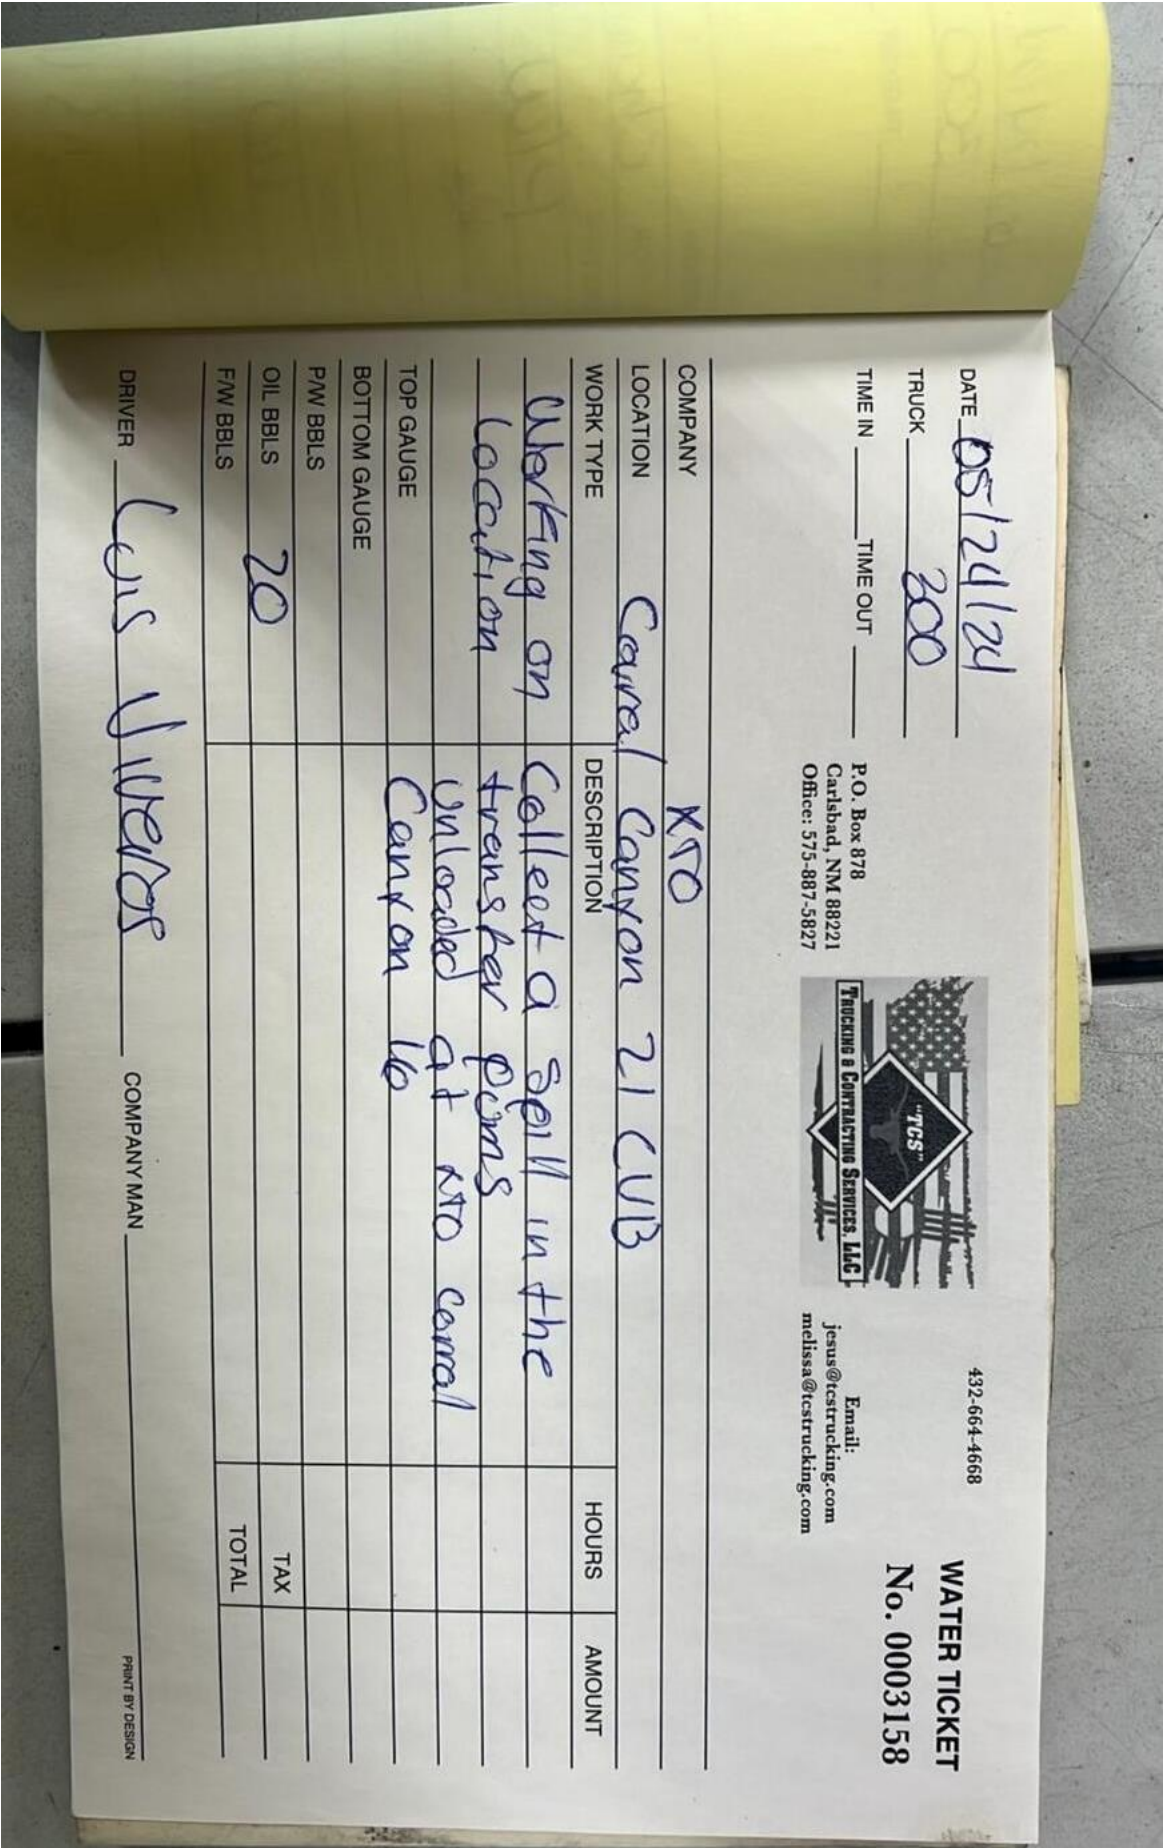 DATE 05/24/24
TRUCK 300
TIME IN TIME OUT
P.O. Box 878
Carlsbad, NM 88221
Office: 575-887-5827
"TCS"
TRUCKING & CONTRACTING SERVICES, LLC
432-664-4668
Email:
jesus@tcstrucking.com
melissa@tcstrucking.com
WATER TICKET
No. 0003158
COMPANY XTO
LOCATION Corral Canyon 21 CVB
WORK TYPE DESCRIPTION HOURS AMOUNT
Working on Colleet a spill in the
Location transfer pums
unloaded at XTO corral
TOP GAUGE Canyon 16
BOTTOM GAUGE
P/W BBLS
OIL BBLS 20 TAX
F/W BBLS TOTAL
DRIVER Luis Viveros COMPANY MAN
PRINT BY DESIGN